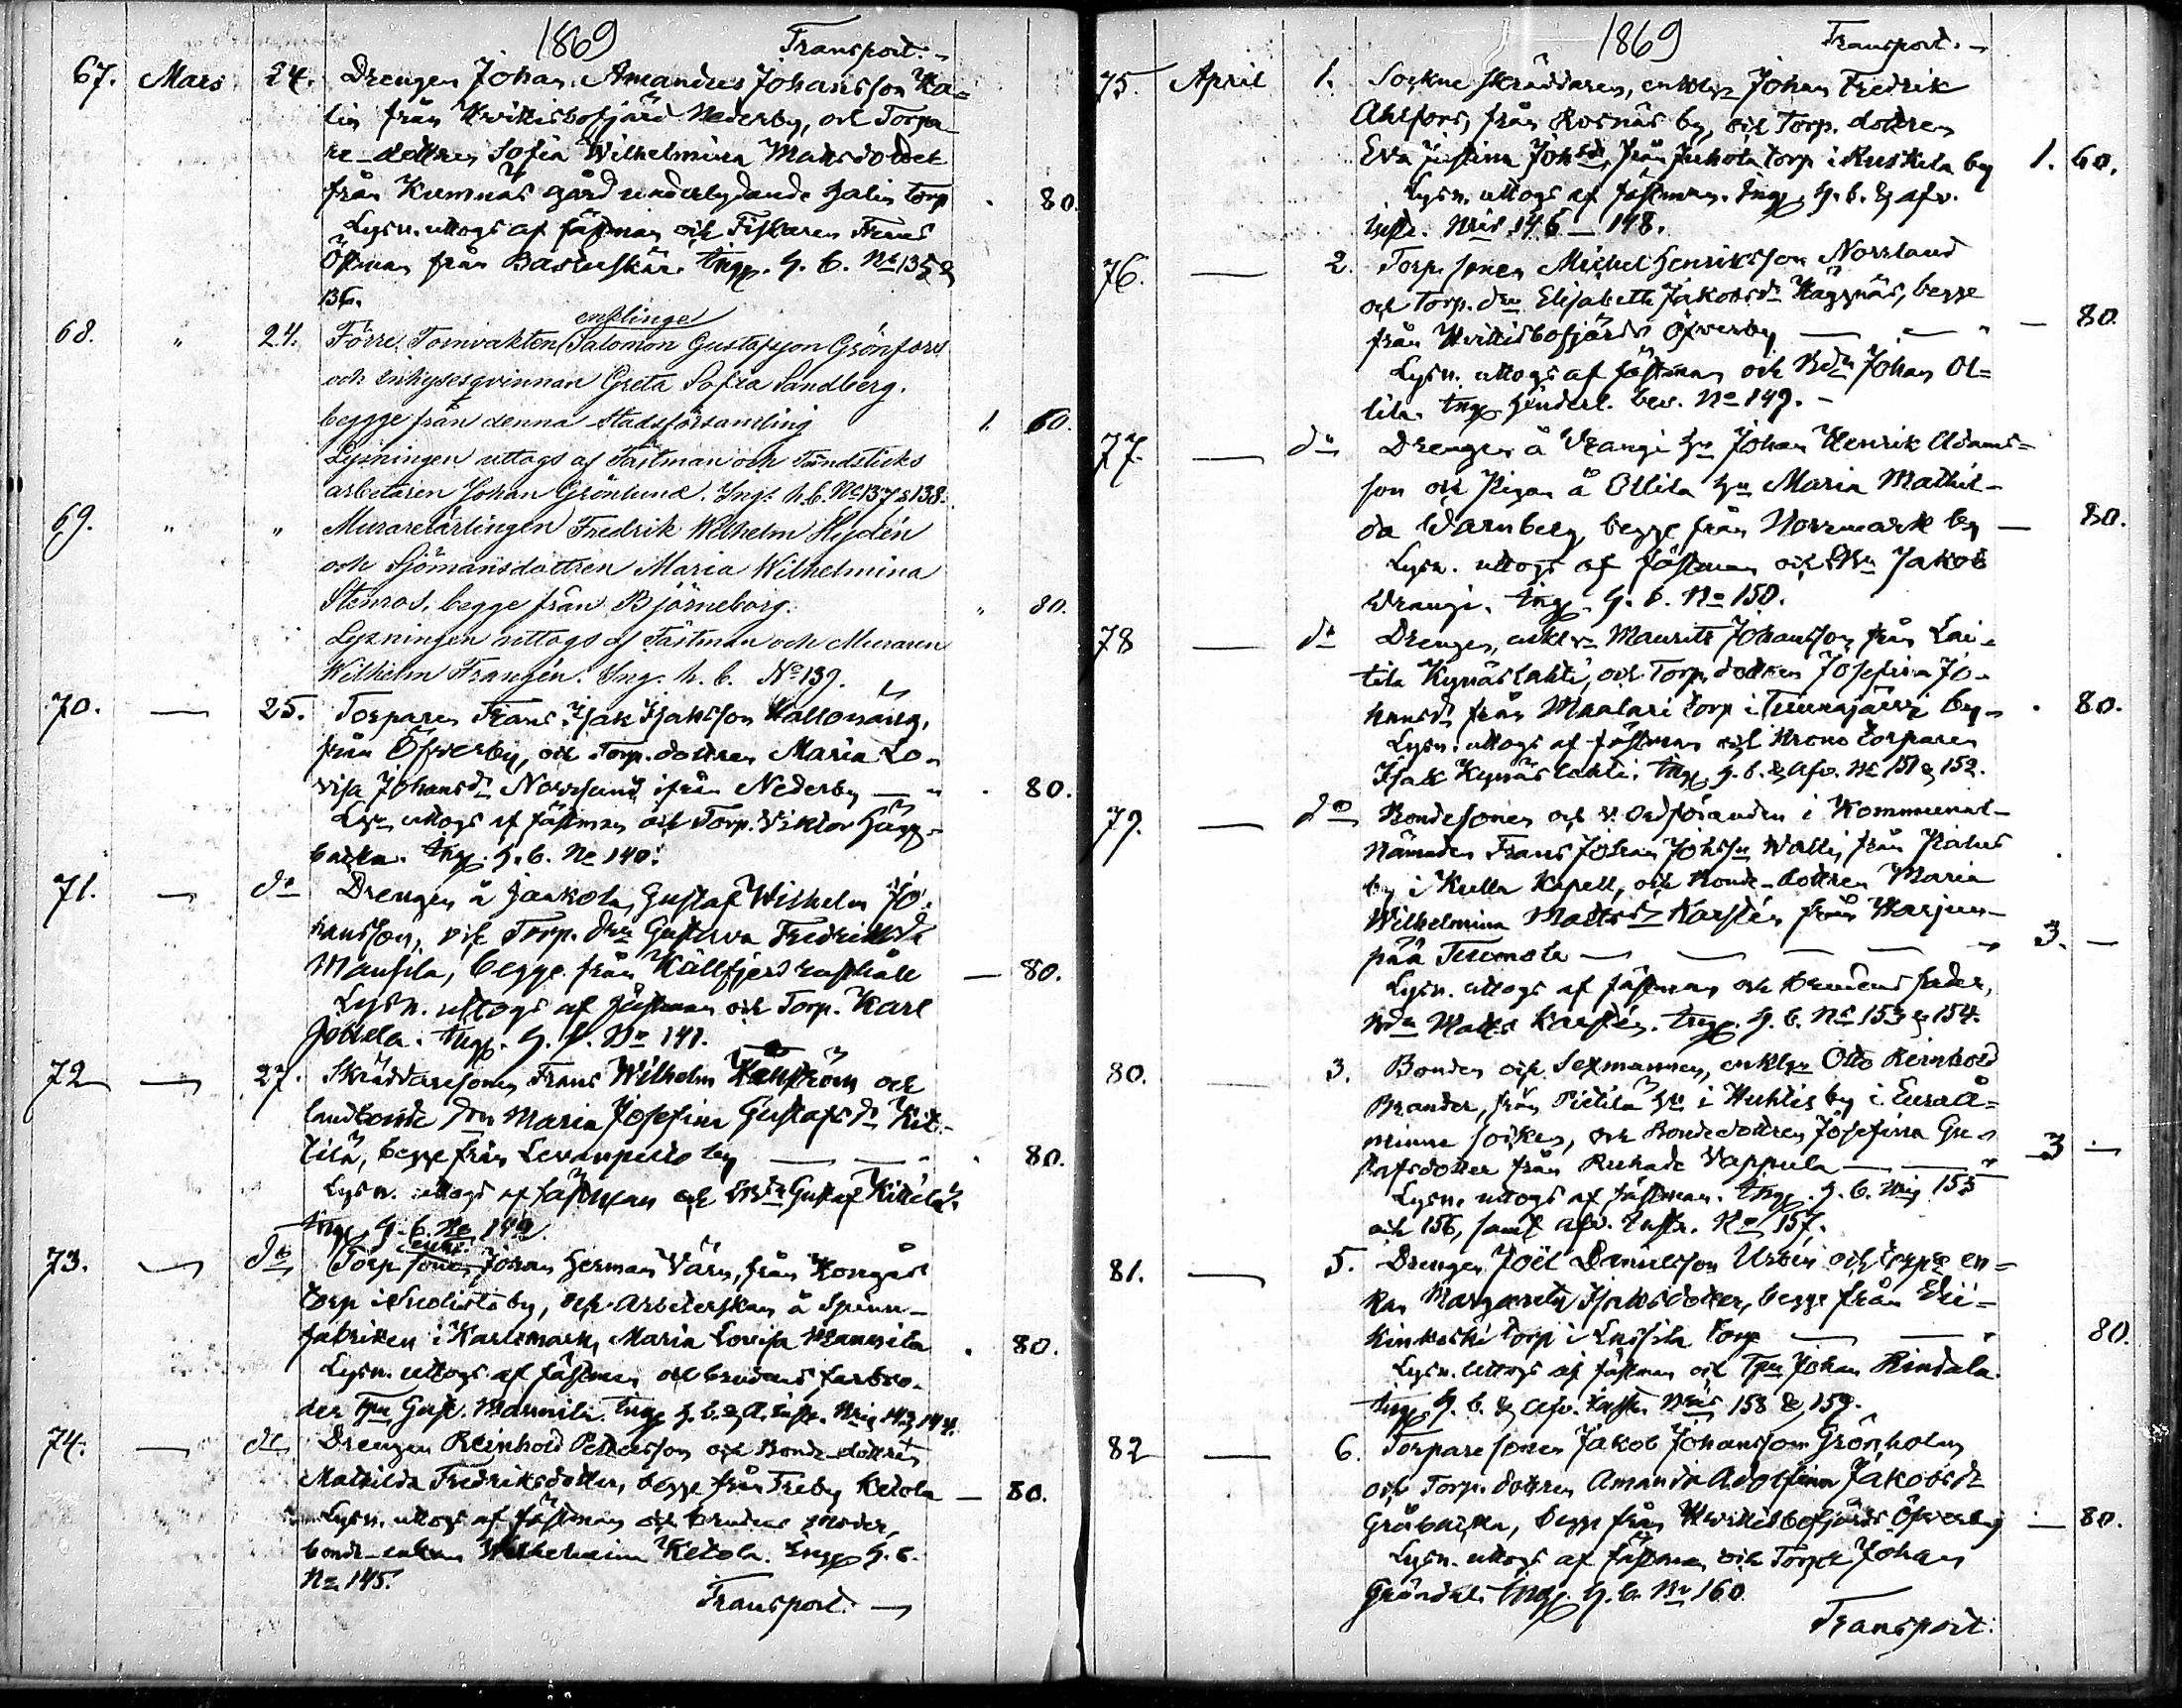 1869 Transport.
67. Mars 24. Drengen Johan Amandus Johansson Ka=
lin från Hvittisbofjärd Nederby, och Torpa-
re-dottren Sofia Wilhelmina Matsdotter
från Kumnäs gård underlydande torp . 80.
Lysn. uttogs af fästman och Fiskaren Frans
Östman från Bastuskär. Ingg. H. b. No 135 &
136.
68. " 24. Förre Tornvakten enklinge Salomon Gustafsson Grönfors
och Inhysesqvinnan Greta Sofia Sandberg.
beggge från denna Stadsförsamling 1. 60.
Lysningen uttogs af Fästman och Tändsticks
arbetaren Johan Grönlund. Ing. h.b. No 137 & 138.
69. " " Murarelärlingen Fredrik Wilhelm Hydén
och Sjömansdottren Maria Wilhelmina
Stenros, begge från Björneborg. " 80.
Lysningen uttogs af Fästman och Muraren
Wilhelm Frangén. Ing. h. b. No 139.
70. — 25. Torparen Frans Isak Isaksson
från Öfverby, och Torp. dottren Maria Lo-
visa Johansdr Norrsund ifrån Nederby — " . 80.
Lysn uttogs af fästman och Torp. Viktor Hägg-
backa. Ingg. H. b. No 140.
71. — do Drengen å Jaakola, Gustaf Wilhelm Jo-
hansson, och Torp. drn Gustava Fredriksdr
Mansila, begge från Källfjerd — 80.
Lysn. uttogs af fästman och Torp. Karl
Ingg. H. b. No 141.
72 — 27. Skräddaresonen Frans Wilhelm och
landbonde drn Maria Josefina Gustafsdr Kit-
tilä, begge från Levanpelto by — — " . 80.
Lysn. uttogs af fästman och Gustaf Kittilä.
Ingg. H. b. No 142
73. — do Torp sonen Johan Herman Värn, från
torp i by, och Arbeterskan å Spinn-
fabriken i Maria Lovisa Mannila . 80.
Lysn. uttogs af fästman och brudens farbro-
der Tpn Gust. Mannila. Ingg. H. b. & A. Nris 143, 144.
74. — do Drengen Reinhold Pettersson och Bonde-dottren
Mathilda Fredriksdotter, begge från Treby Ketola — 80.
Lysn. uttogs af fästman och brudens moder,
bonde-enkan Wilhelmina Ketola. Ingg. H. b.
No 145.
Transport. —
1869 Transport. —
75. April 1. Sockne skräddaren, enkln Johan Fredrik
Ahlfors, från Rosnäs by, och Torp. dottren
Eva Justina Johsdr, från Juhola torp i Ruskila by 1. 60.
Lysn. uttogs af fästman. Ingg. H. b. & afv.
Nris 146 — 148.
76. — 2. Torp. sonen Michel Henriksson Norrland
och Torp. drn Elisabeth Jakobsdr Häggnäs, begge
från Hvittisbofjärds Öfverby — — " — 80.
Lysn. uttogs af fästman och Bdn Johan Ol=
lila. Ingg. Hinderl. bev. No 149. —
77. — do Drengen å Vrangi hn Johan Henrik Adams=
son och Pigan å Ollila hn Maria Mathil-
da Warnberg, begge från Norrmark by — 80.
Lysn. uttogs af fästman och Jakob
Vrangi. Ingg. H. b. No 150.
78 — do Drengen, enkln Maurits Johansson från Lai-
tila Kynäslahti, och Torp. dottren Josefina Jo-
hansdr från Maalari torp i Tuunajärvi by - . 80.
Lysn. uttogs af fästman och Krono torparen
Isak Kynäslahti. Ingg. H. b. & Afv. No 151 & 152.
79. — do Bondesonen och v. Ordföranden i Kommunal-
Nämnden Frans Johan Johssn från
by i Kulla Kapell, och Bonde-dottren Maria
Wilhelmina Mattsdr Karstén från Harjun-
pää Tuomola — — — — " 3. —
Lysn. uttogs af fästman och brudens fader,
Bdn Matts Karstén. Ingg. H. b. No 153 & 154.
80. — 3. Bonden och Sexmannen, enkln Otto Reinhold
Brander, från Pietilä hn i Huhtis by i Eura Å=
minne socken, och Bondedottren Josefina Gu-
stafsdotter från Ruhade Vappula — — " 3 —
Lysn. uttogs af fästman. Ingg. H. b. Nris 155
och 156, samt afv. No 157.
81. — 5. Drengen Joël Danielsson Urbin och en=
kan Margareta Isaksdotter, begge från
torp i Lassila torp — — " 80.
Lysn. uttogs af fästman och Tpn Johan Rindala.
Ingg. H. b. & afv. Nris 158 & 159.
82 — 6. Torpare sonen Jakob Johansson Grönholm
och Torp. dottren Amanda Adolfina Jakobsdr
Gråbacka, begge från Hvittisbofjärds Öfverby — 80.
Lysn. uttogs af fästman och Torpn Johan
Gröndahl. Ingg. H. b. No 160.
Transport.